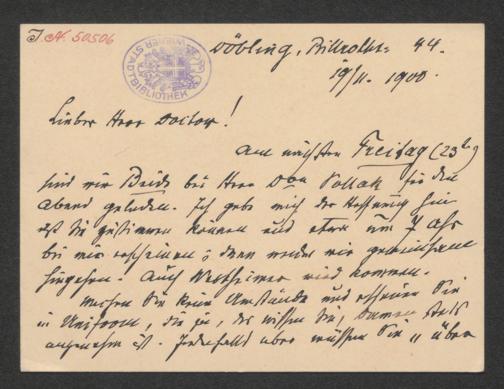 J. N. 50506
WIENER STADTBIBLIOTHEK
Döbling, Billrothstr. 44.
19/11. 1900.
Lieber Herr Doctor!
Am nächsten Freitag (23t)
sind wir Beide bei Herrn Don Pollak für den
Abend geladen. Ich gebe mich der Hoffnung hin
daß Sie zustimmen können und etwa um 7 Uhr
bei mir erscheinen; dann werden wir gemeinsam
hingehen. Auch Wertheimer wird kommen.
Machen Sie keine Umstände und erscheinen Sie
in Uniform, die ja, das wissen Sie, Damen stets
angenehm ist. Jedenfalls aber müssen Sie „über